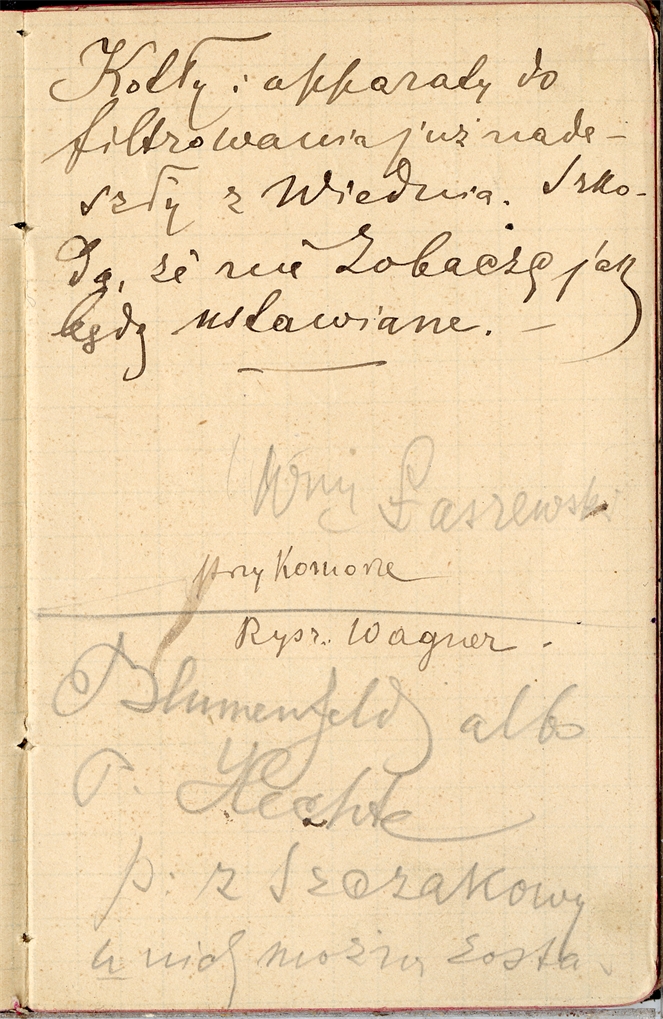 Kotły i apparaty do
filtrowania już nade-
szły z Wiednia. Szko-
da, że nie zobaczę jak
będą ustawiane. —
Wny Łaszewski
przy Komorze
Rysz. Wagner.
Blumenfeld albo
P. Hechte
p: z Szczakowy
u nich można zosta